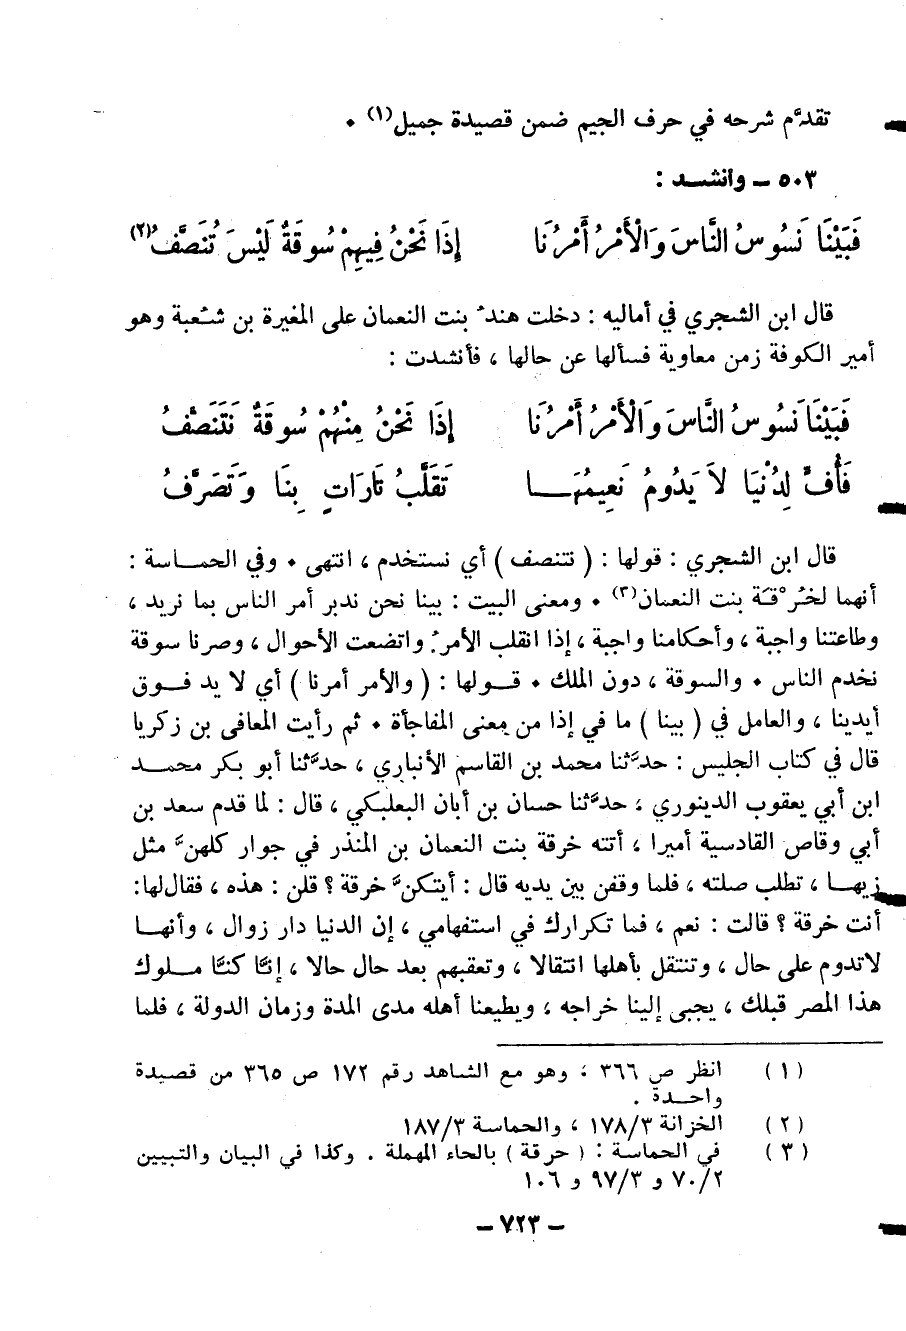 تقدَّم شرحه في حرف الجيم ضمن قصيدة جميل(١) •
٥٠٣ ـ وانشـد :
فَبَيْنَا نَسُوسُ النَّاسَ وَالْأَمْرُ أَمْرُنَا    إِذَا نَحْنُ فِيهِمْ سُوقَةٌ لَيْسَ تُنَصَّفُ(٢)
قال ابن الشجري في أماليه : دخلت هندُ بنت النعمان على المغيرة بن شُعبة وهو
أمير الكوفة زمن معاوية فسألها عن حالها ، فأنشدت :
فَبَيْنَا نَسُوسُ النَّاسَ وَالْأَمْرُ أَمْرُنَا    إِذَا نَحْنُ مِنْهُمْ سُوقَةٌ نَتَنَصَّفُ
فَأُفٍّ لِدُنْيَا لاَ يَدُومُ نَعِيمُهَــا    تَقَلَّبُ تَارَاتٍ بِنَا وَتَصَرَّفُ
قال ابن الشجري : قولها : ( نتنصف ) أي نستخدم ، انتهى • وفي الحمـاسة :
أنهما لخُرْقَة بنت النعمان(٣) • ومعنى البيت : بينا نحن ندبر أمر الناس بما نريد ،
وطاعتنا واجبة ، وأحكامنا واجبة ، إذا انقلب الأمرُ واتضعت الأحوال ، وصرنا سوقة
نخدم الناس • والسوقة ، دون الملك • قـولها : ( والأمر أمرنا ) أي لا يد فـوق
أيدينا ، والعامل في ( بينا ) ما في إذا من معنى المفاجأة • ثم رأيت المعافى بن زكريا
قال في كتاب الجليس : حدَّثنا محمد بن القاسم الأنباري ، حدَّثنا أبو بكر محمـد
ابن أبي يعقوب الدينوري ، حدَّثنا حسان بن أبان البعلبكي ، قال : لما قدم سعد بن
أبي وقاص القادسية أميرا ، أتته خرقة بنت النعمان بن المنذر في جوار كلهنَّ مثل
زيهـا ، تطلب صلته ، فلما وقفن بين يديه قال : أيتكنَّ خرقة ؟ قلن : هذه ، فقال لها:
أنت خرقة ؟ قالت : نعم ، فما تكرارك في استفهامي ، إن الدنيا دار زوال ، وأنهـا
لاتدوم على حال ، وتنتقل بأهلها انتقالا ، وتعقبهم بعد حال حالا ، إنَّا كنَّا مـلوك
هذا المصر قبلك ، يجبى إلينا خراجه ، ويطيعنا أهله مدى المدة وزمان الدولة ، فلما
(١) انظر ص ٣٦٦ ، وهو مع الشاهد رقم ١٧٢ ص ٣٦٥ من قصيدة
واحـدة .
(٢) الخزانة ١٧٨/٣ ، والحماسة ١٨٧/٣
(٣) في الحماسة : ( حرقة ) بالحاء المهملة . وكذا في البيان والتبيين
٧٠/٢ و ٩٧/٣ و ١٠٦
ـ ٧٢٣ ـ